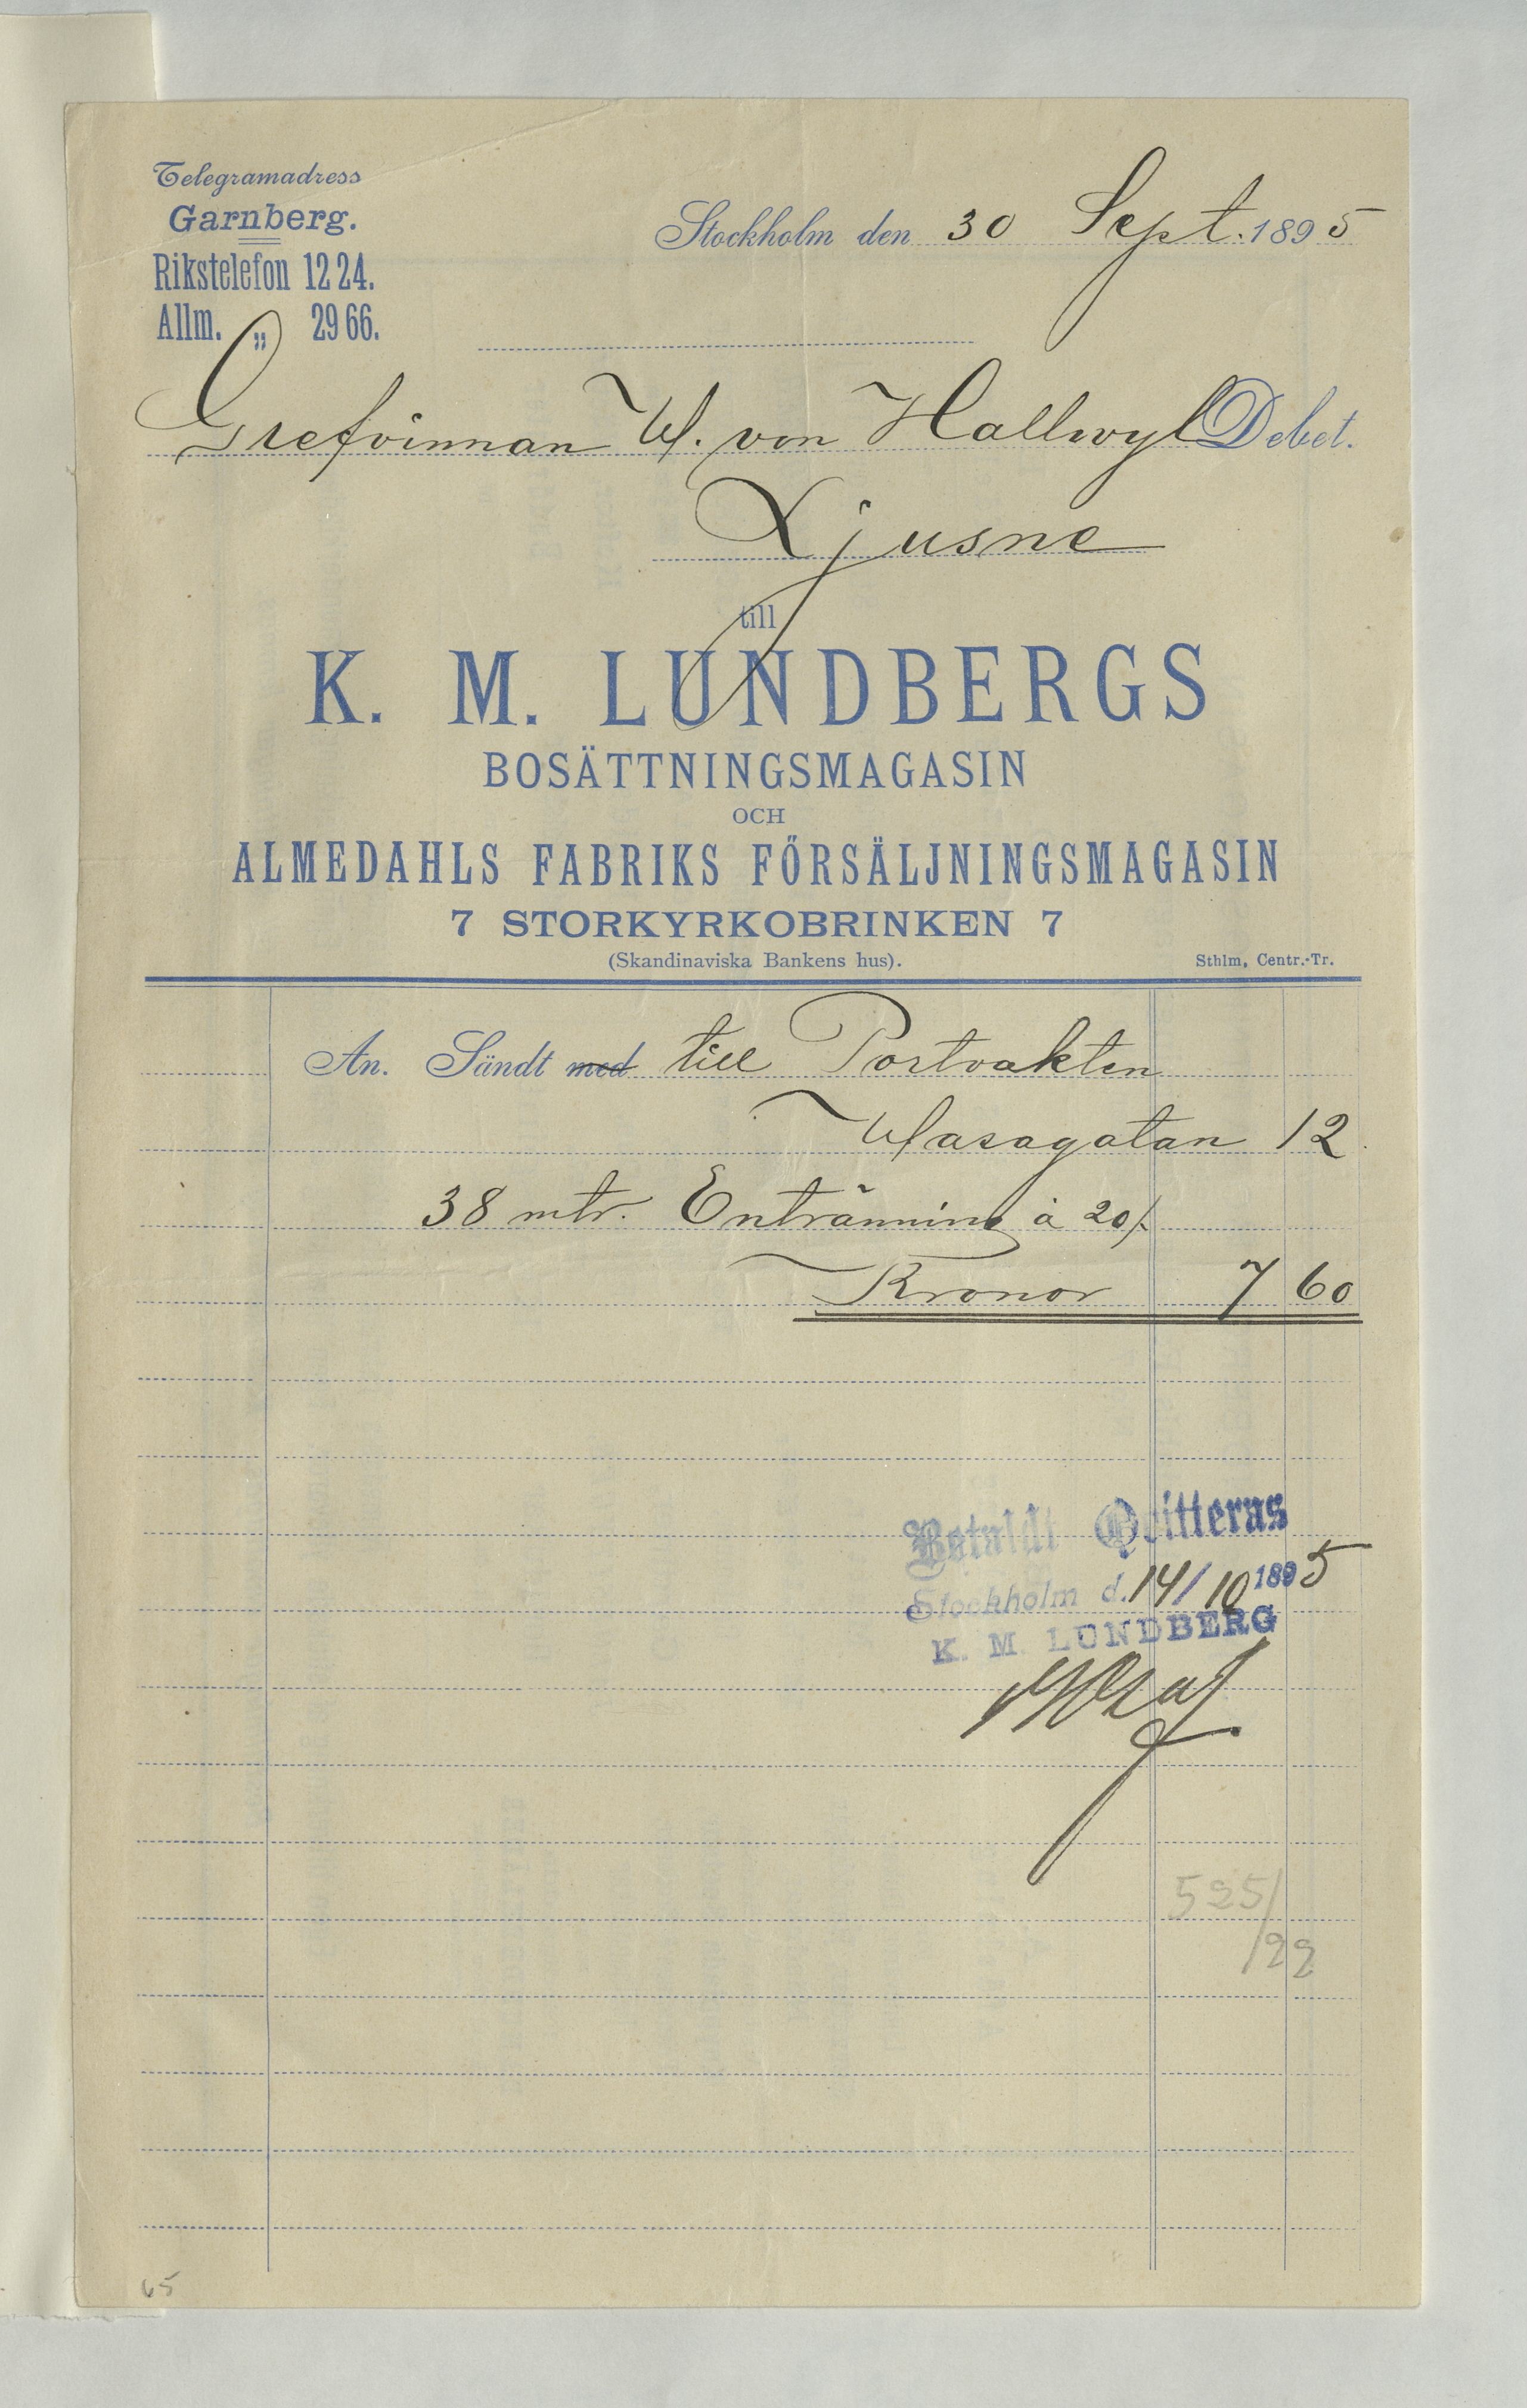 Telegramadress
Garnberg.
Rikstelefon 1224.
Allm. „ 2966.
Stockholm den 30 Sept. 1895
Grefvinnan W. von Hallwyl Debet.
Ljusne
till
K. M. LUNDBERGS
BOSÄTTNINGSMAGASIN
OCH
ALMEDAHLS FABRIKS FÖRSÄLJNINGSMAGASIN
7 STORKYRKOBRINKEN 7
(Skandinaviska Bankens hus).
Sthlm, Centr.-Tr.
An. Sändt med till Portvakten
Wasagatan 12
38 mtr. Entränning à 20/-
Kronor 7 60
Betaldt Qvitteras
Stockholm d. 14/10 1895
K. M. LUNDBERG
525/22
65